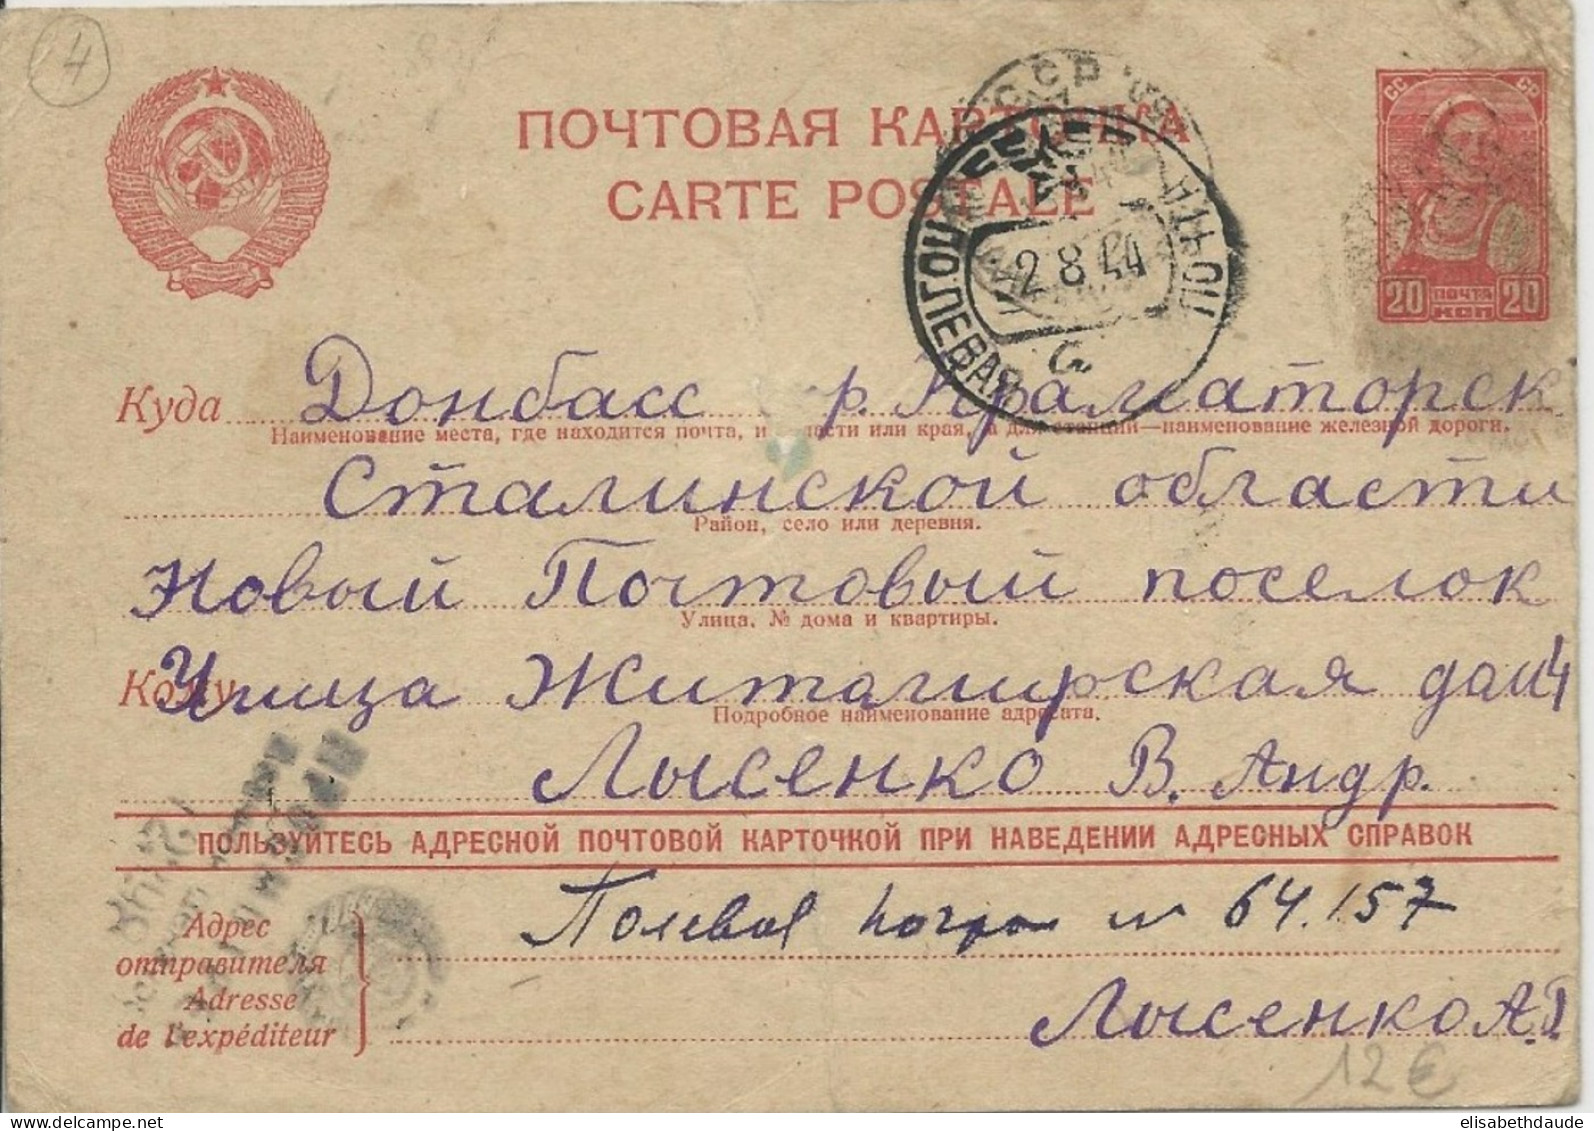 4
ПОЧТОВАЯ КАРТОЧКА
CARTE POSTALE
СС СР
20 ПОЧТА КОП 20
СССР
ПОЛЕВАЯ ПОЧТА
2 8 44
Куда Донбасс г. Краматорск
Наименование места, где находится почта, и области или края, а для станций—наименование железной дороги.
Сталинской области
Район, село или деревня.
Новый Почтовый поселок
Улица, № дома и квартиры.
Кому Улица дом 4
Подробное наименование адресата.
Лысенко В. Андр.
ПОЛЬЗУЙТЕСЬ АДРЕСНОЙ ПОЧТОВОЙ КАРТОЧКОЙ ПРИ НАВЕДЕНИИ АДРЕСНЫХ СПРАВОК
Адрес
отправителя
Adresse
de l'expéditeur
Полевая почта № 64.157
Лысенко А.
12€
elisabethdaude